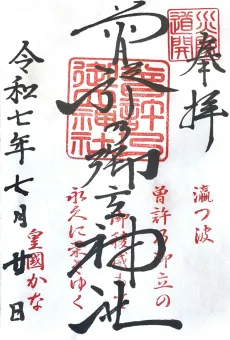 奉拝
道開
曽許乃御立神社
令和七年七月廿日
瀛つ波
曽許乃御立の
永久に栄ゆく
皇國かな